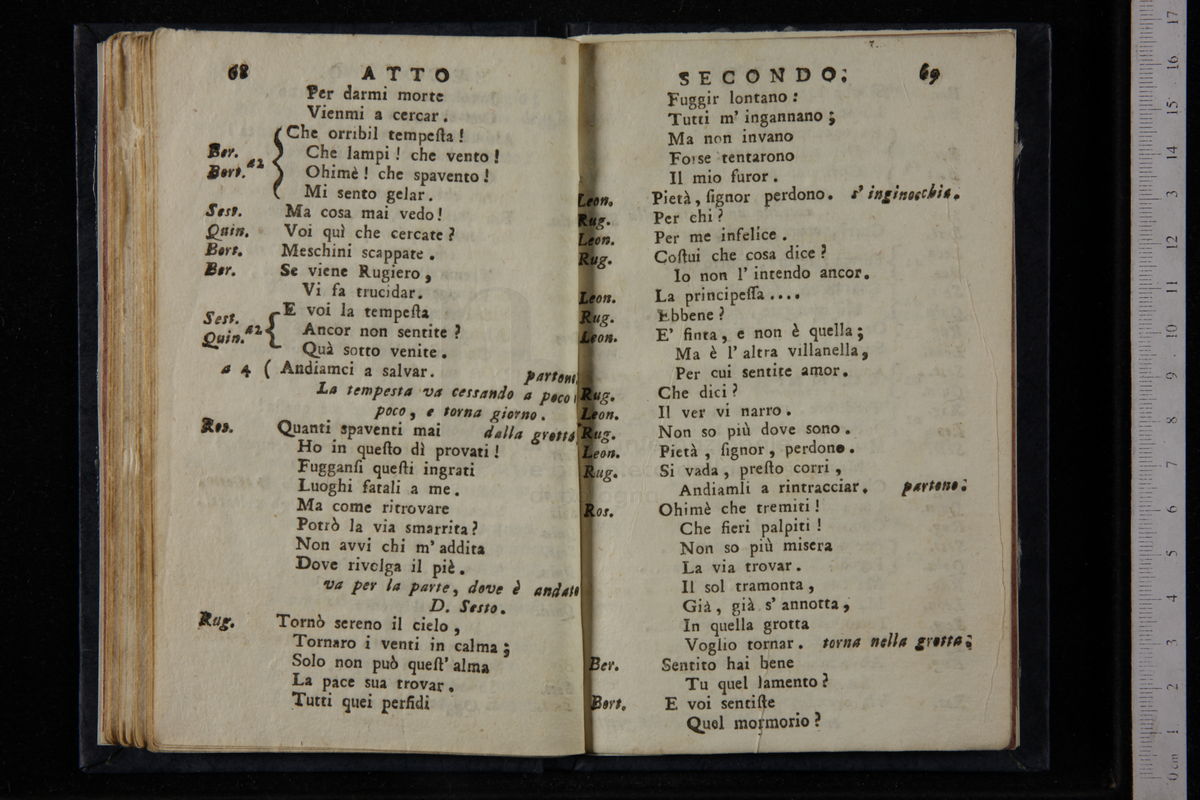 68 ATTO
Per darmi morte
Vienmi a cercar.
Che orribil tempeſta!
Ber. Che lampi! che vento!
Bert. a2 Ohimè! che spavento!
Mi sento gelar.
Sest. Ma cosa mai vedo!
Quin. Voi quì che cercate?
Bert. Meschini scappate.
Ber. Se viene Rugiero,
Vi fa trucidar.
Sest. E voi la tempeſta
Quin. a2 Ancor non sentite?
Quà sotto venite.
a 4 ( Andiamci a salvar. partono
La tempesta va cessando a poco
poco, e torna giorno.
Ros. Quanti spaventi mai dalla grotta
Ho in queſto dì provati!
Fugganſi queſti ingrati
Luoghi fatali a me.
Ma come ritrovare
Potrò la via smarrita?
Non avvi chi m' addita
Dove rivolga il piè.
va per la parte, dove è andato
D. Sesto.
Rug. Tornò sereno il cielo,
Tornaro i venti in calma;
Solo non può queſt' alma
La pace sua trovar.
Tutti quei perfidi
SECONDO. 69
Fuggir lontano:
Tutti m' ingannano;
Ma non invano
Forse tentarono
Il mio furor.
Leon. Pietà, ſignor perdono. s' inginocchia.
Rug. Per chi?
Leon. Per me infelice.
Rug. Coſtui che cosa dice?
Io non l' intendo ancor.
Leon. La principeſſa....
Rug. Ebbene?
Leon. E' finta, e non è quella;
Ma è l' altra villanella,
Per cui sentite amor.
Rug. Che dici?
Leon. Il ver vi narro.
Rug. Non so più dove sono.
Leon. Pietà, ſignor, perdono.
Rug. Si vada, preſto corri,
Andiamli a rintracciar. partono.
Ros. Ohimè che tremiti!
Che fieri palpiti!
Non so più misera
La via trovar.
Il sol tramonta,
Già, già s' annotta,
In quella grotta
Voglio tornar. torna nella grotta.
Ber. Sentito hai bene
Tu quel lamento?
Bert. E voi sentiſte
Quel mormorio?